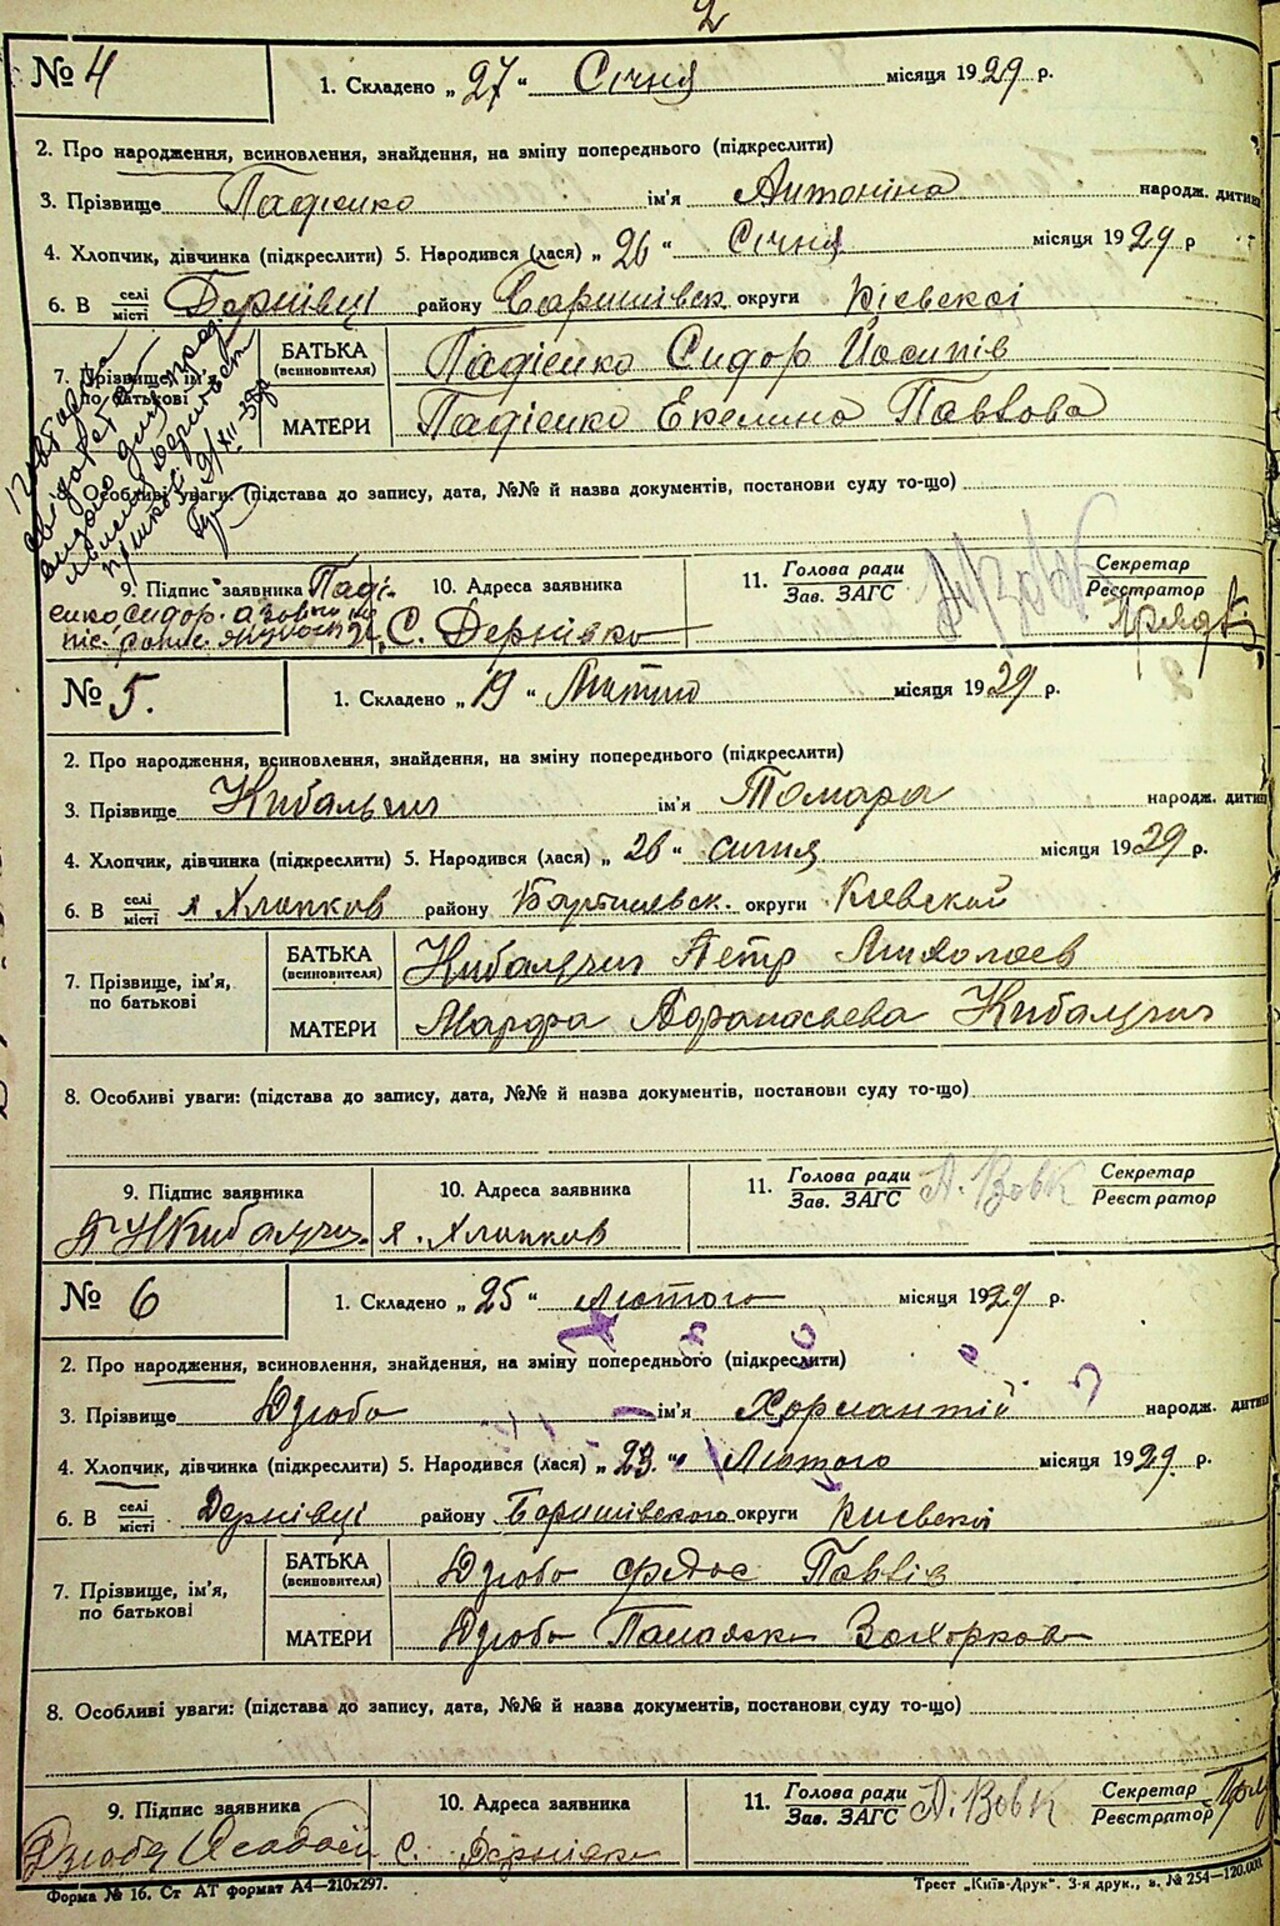 2
№ 4
1. Складено „ 27 “ Січня місяця 1929 р.
2. Про народження, всиновлення, знайдення, на зміну попереднього (підкреслити)
3. Прізвище Падієнко ім'я Антоніна народж. дитини
4. Хлопчик, дівчинка (підкреслити) 5. Народився (лася) „ 26 “ Січня місяця 1929 р
6. В селі місті Дернівці району Баришівськ. округи Кієвскої
7. Прізвище, ім'я, по батькові
БАТЬКА (всиновителя) Падієнко Сидор Йосипів
МАТЕРИ Падієнко Екелина Павлова
Особливі уваги: (підстава до запису, дата, №№ й назва документів, постанови суду то-що)
9. Підпис заявника Падієнко Сидор
10. Адреса заявника С. Дернівка
11. Голова ради Зав. ЗАГС А. Вовк Секретар Реєстратор
№ 5.
1. Складено „ 19 “ Лютий місяця 1929 р.
2. Про народження, всиновлення, знайдення, на зміну попереднього (підкреслити)
3. Прізвище Кибальчич ім'я Томара народж. дитини
4. Хлопчик, дівчинка (підкреслити) 5. Народився (лася) „ 26 “ сичня місяця 1929 р.
6. В селі місті х Хлопков району Бартшевск. округи Киевской
7. Прізвище, ім'я, по батькові
БАТЬКА (всиновителя) Кибальчич Петр Миколаев
МАТЕРИ Марфа Афанасьева Кибальчич
8. Особливі уваги: (підстава до запису, дата, №№ й назва документів, постанови суду то-що)
9. Підпис заявника П Н Кибальчич
10. Адреса заявника х. Хлопков
11. Голова ради Зав. ЗАГС А. Вовк Секретар Реєстратор
№ 6
1. Складено „ 25 “ Лютого місяця 1929 р.
2. Про народження, всиновлення, знайдення, на зміну попереднього (підкреслити)
3. Прізвище Дзюба ім'я Хормантій народж. дитини
4. Хлопчик, дівчинка (підкреслити) 5. Народився (лася) „ 23. “ Лютого місяця 1929 р.
6. В селі місті Дернівці району Баришівського округи Киевскої
7. Прізвище, ім'я, по батькові
БАТЬКА (всиновителя) Дзюба Федос Павлів
МАТЕРИ Дзюба Палажка Захоркова
8. Особливі уваги: (підстава до запису, дата, №№ й назва документів, постанови суду то-що)
9. Підпис заявника Дзюба
10. Адреса заявника С. Дернівка
11. Голова ради Зав. ЗАГС А. Вовк Секретар Реєстратор
Форма № 16. Ст АТ формат А4—210х297.
Трест „Київ-Друк“. 3-я друк., з. № 254—120.000.